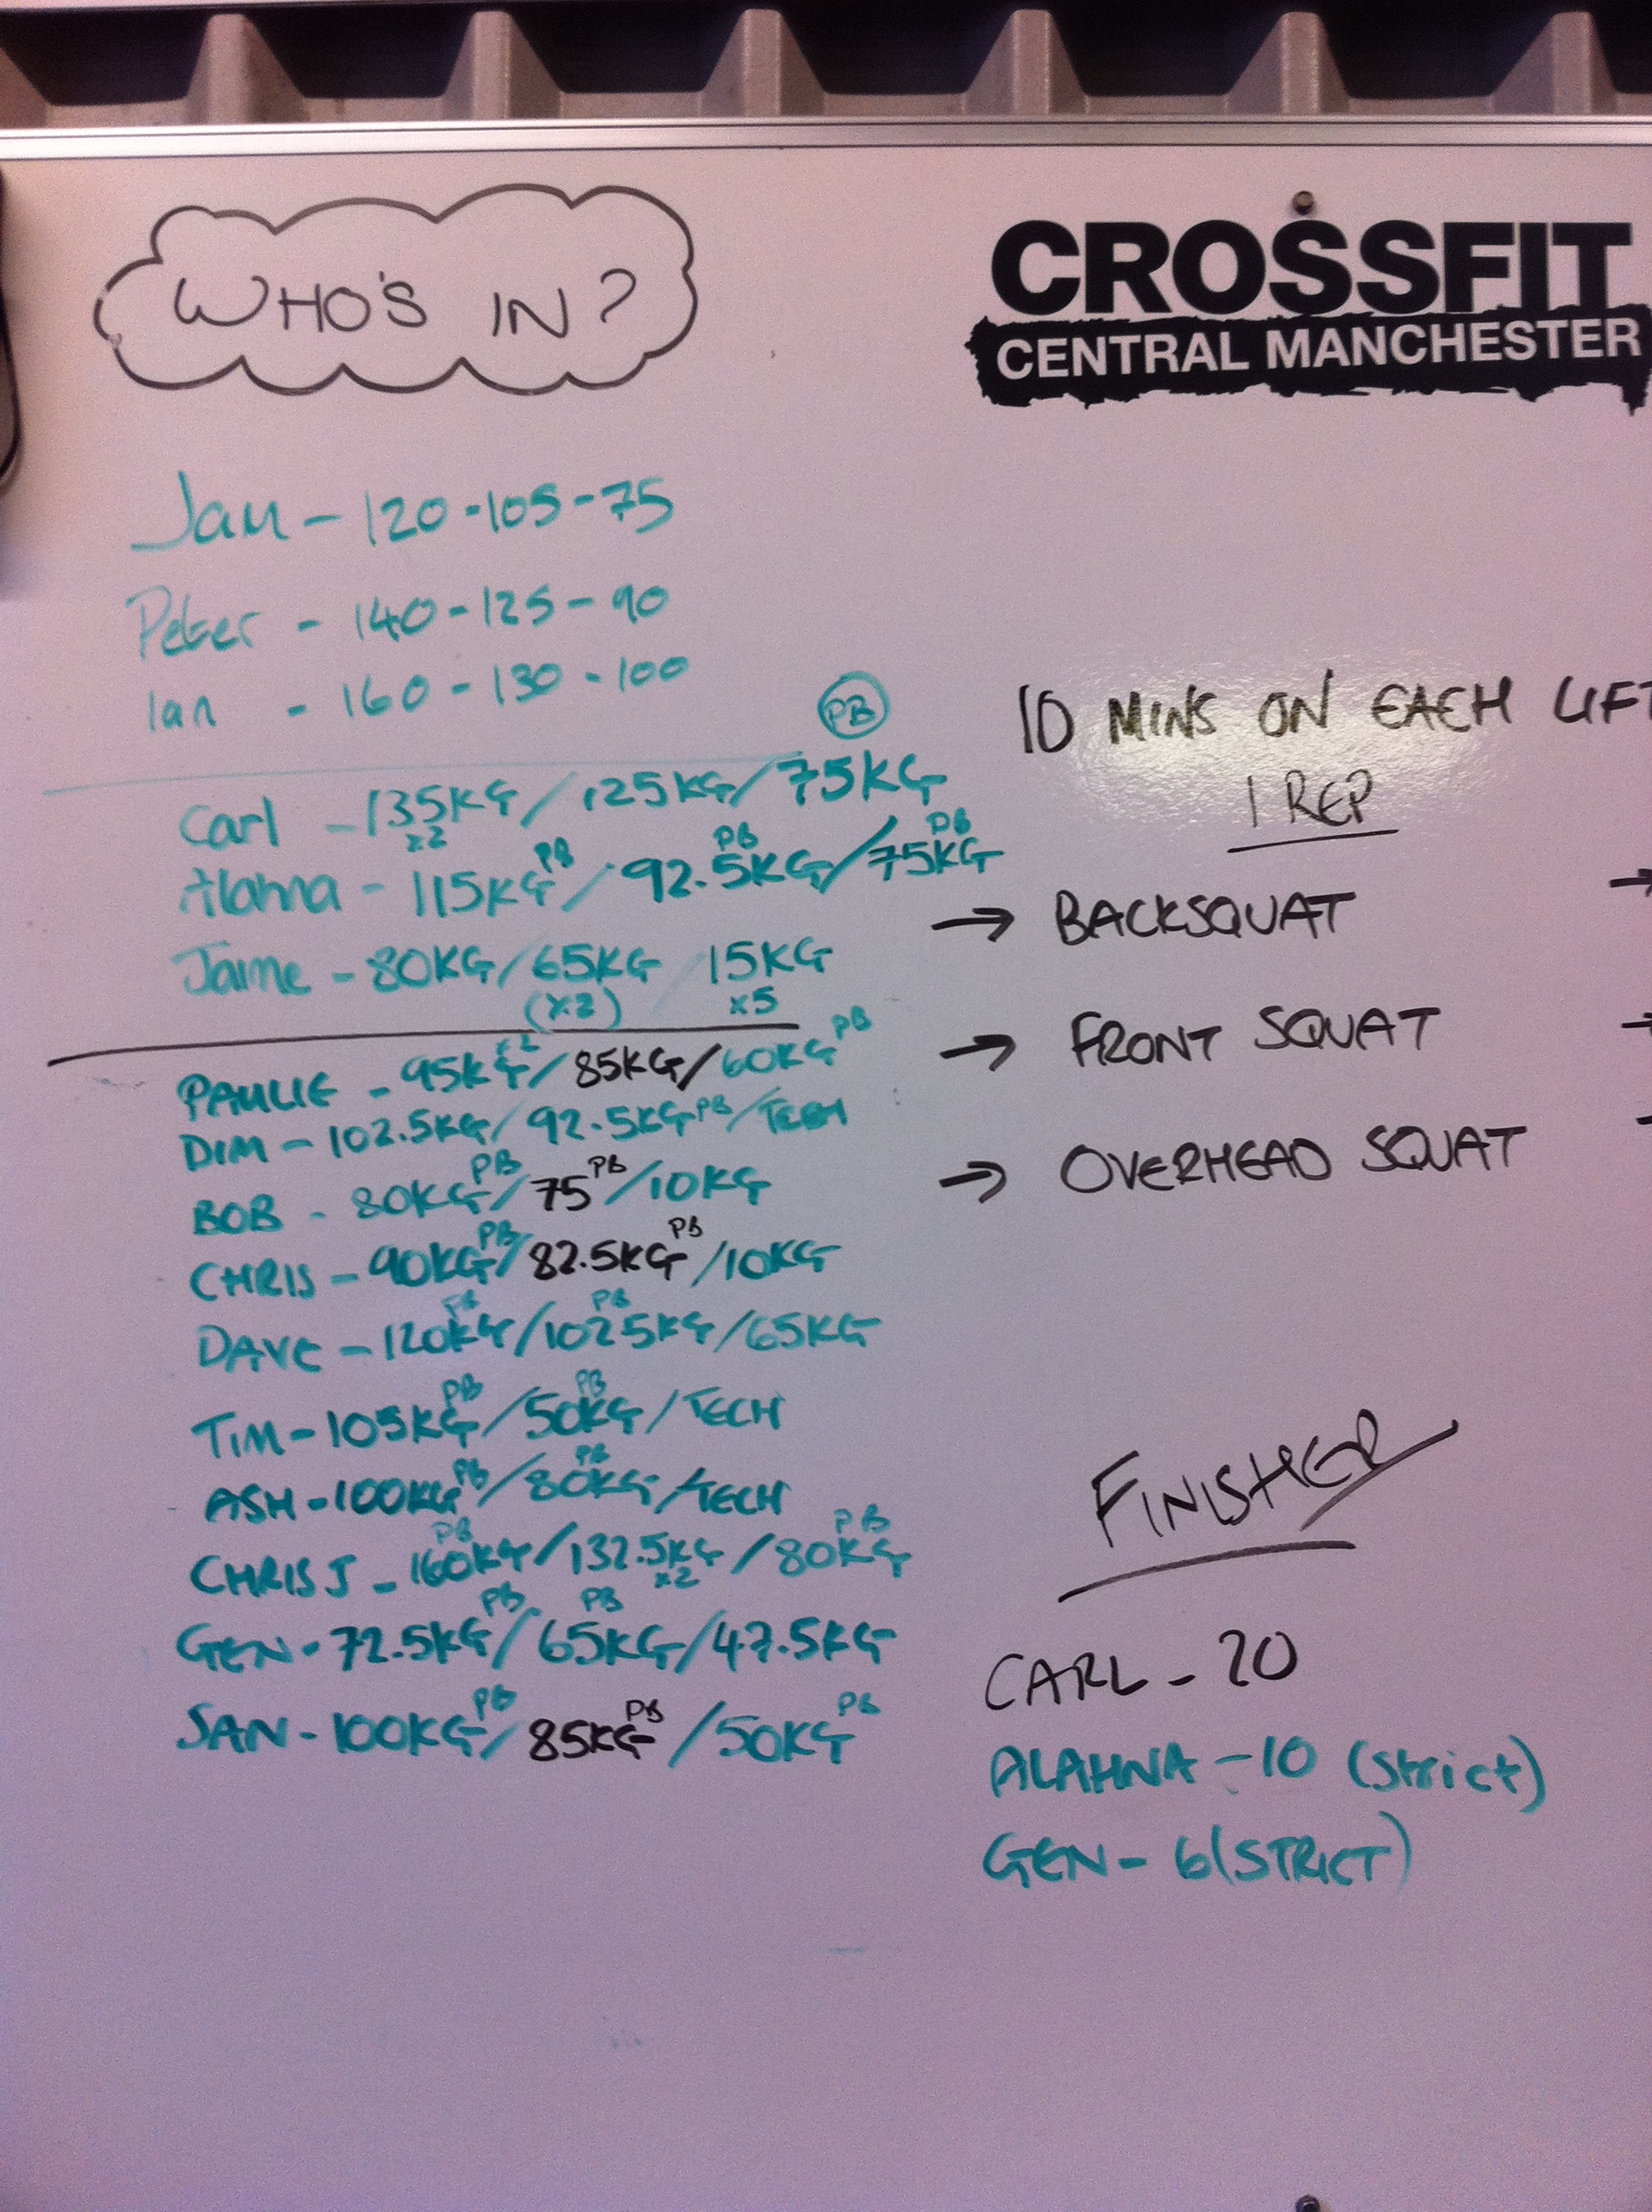 WHO'S IN?
CROSSFIT
CENTRAL MANCHESTER
Jan - 120 - 105 - 75
Peter - 140 - 125 - 90
Ian - 160 - 130 - 100
PB
Carl - 135KG / 125KG / 75KG
x2
PB PB PB
Alahna - 115KG / 92.5KG / 75KG
Jaime - 80KG / 65KG / 15KG
(x2) x5
PAULIE - 95KG x2 / 85KG / 60KG PB
DIM - 102.5KG / 92.5KG PB / TECH
BOB - 80KG PB / 75 PB / 10KG
CHRIS - 90KG PB / 82.5KG PB / 10KG
PB PB
DAVE - 120KG / 102.5KG / 65KG
PB PB
TIM - 105KG / 50KG / TECH
PB PB
ASH - 100KG / 80KG / TECH
PB PB
CHRIS J - 160KG / 132.5KG / 80KG
x2
PB PB
GEN - 72.5KG / 65KG / 47.5KG
SAN - 100KG PB / 85KG PB / 50KG PB
10 MINS ON EACH LIFT
1 REP
→ BACKSQUAT
→ FRONT SQUAT
→ OVERHEAD SQUAT
FINISHER
CARL - 20
ALAHNA - 10 (strict)
GEN - 6 (STRICT)